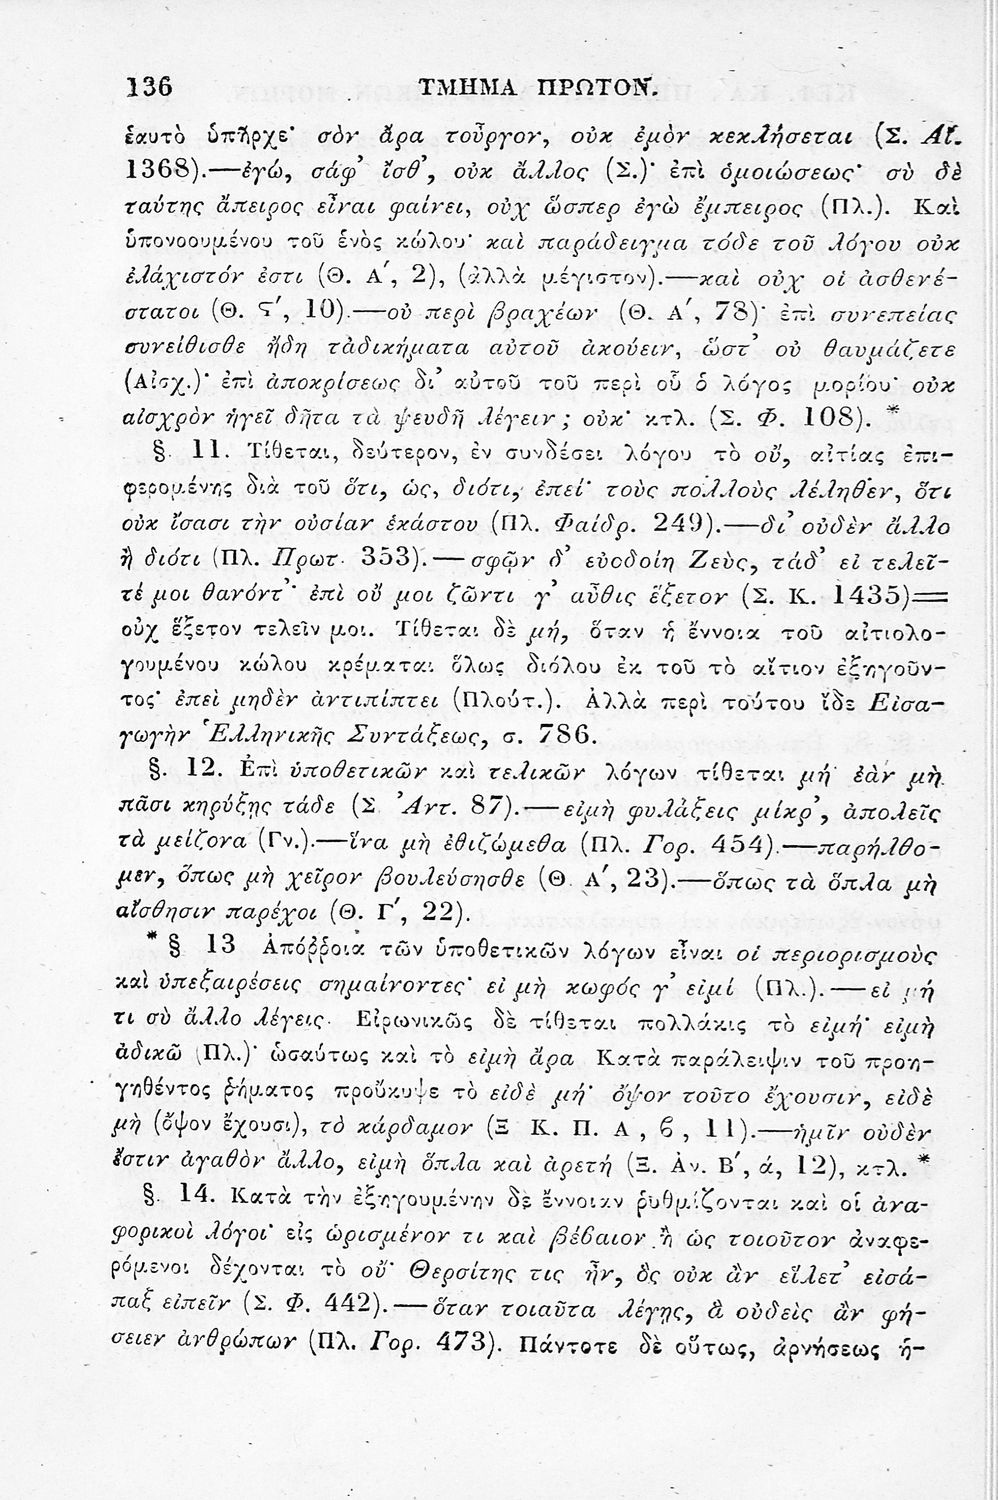 136 ΤΜΗΜΑ ΠΡΩΤΟΝ.
ἑαυτὸ ὑπῆρχε· σὸν ἄρα τοὖργον, οὐκ ἐμὸν κεκλήσεται (Σ. Αἴ.
1368).—ἐγώ, σάφ’ ἴσθ’, οὐκ ἄλλος (Σ.)· ἐπὶ ὁμοιώσεως· σὺ δὲ
ταύτης ἄπειρος εἶναι φαίνει, οὐχ ὥσπερ ἐγὼ ἔμπειρος (Πλ.). Καὶ
ὑπονοουμένου τοῦ ἑνὸς κώλου· καὶ παράδειγμα τόδε τοῦ λόγου οὐκ
ἐλάχιστόν ἐστι (Θ. Α΄, 2), (ἀλλὰ μέγιστον).—καὶ οὐχ οἱ ἀσθενέ-
στατοι (Θ. Ϛ΄, 10).—οὐ περὶ βραχέων (Θ. Α΄, 78)· ἐπὶ συνεπείας
συνείθισθε ἤδη τἀδικήματα αὐτοῦ ἀκούειν, ὥστ’ οὐ θαυμάζετε
(Αἰσχ.)· ἐπὶ ἀποκρίσεως δι’ αὐτοῦ τοῦ περὶ οὗ ὁ λόγος μορίου· οὐκ
αἰσχρὸν ἡγεῖ δῆτα τὰ ψευδῆ λέγειν; οὐκ· κτλ. (Σ. Φ. 108). *
§. 11. Τίθεται, δεύτερον, ἐν συνδέσει λόγου τὸ οὔ, αἰτίας ἐπι-
φερομένης διὰ τοῦ ὅτι, ὡς, διότι, ἐπεί· τοὺς πολλοὺς λέληθεν, ὅτι
οὐκ ἴσασι τὴν οὐσίαν ἑκάστου (Πλ. Φαίδρ. 249).—δι’ οὐδὲν ἄλλο
ἢ διότι (Πλ. Πρωτ. 353).—σφῷν δ’ εὐοδοίη Ζεὺς, τάδ’ εἰ τελεῖ-
τέ μοι θανόντ’· ἐπὶ οὔ μοι ζῶντι γ’ αὖθις ἕξετον (Σ. Κ. 1435)=
οὐχ ἕξετον τελεῖν μοι. Τίθεται δὲ μή, ὅταν ἡ ἔννοια τοῦ αἰτιολο-
γουμένου κώλου κρέμαται ὅλως διόλου ἐκ τοῦ τὸ αἴτιον ἐξηγοῦν-
τος· ἐπεὶ μηδὲν ἀντιπίπτει (Πλούτ.). Ἀλλὰ περὶ τούτου ἴδε Εἰσα-
γωγὴν Ἑλληνικῆς Συντάξεως, σ. 786.
§. 12. Ἐπὶ ὑποθετικῶν καὶ τελικῶν λόγων τίθεται μή· ἐὰν μὴ
πᾶσι κηρύξῃς τάδε (Σ Ἀντ. 87).—εἰμὴ φυλάξεις μίκρ’, ἀπολεῖς
τὰ μείζονα (Γν.).—ἵνα μὴ ἐθιζώμεθα (Πλ. Γορ. 454).—παρήλθο-
μεν, ὅπως μὴ χεῖρον βουλεύσησθε (Θ. Α΄, 23).—ὅπως τὰ ὅπλα μὴ
αἴσθησιν παρέχοι (Θ. Γ΄, 22).
* § 13 Ἀπόῤῥοια τῶν ὑποθετικῶν λόγων εἶναι οἱ περιορισμοὺς
καὶ ὑπεξαιρέσεις σημαίνοντες· εἰ μὴ κωφός γ’ εἰμί (Πλ.).—εἰ μή
τι σὺ ἄλλο λέγεις. Εἰρωνικῶς δὲ τίθεται πολλάκις τὸ εἰμή· εἰμὴ
ἀδικῶ (Πλ.)· ὡσαύτως καὶ τὸ εἰμὴ ἄρα Κατὰ παράλειψιν τοῦ προη-
γηθέντος ῥήματος προὔκυψε τὸ εἰδὲ μή· ὄψον τοῦτο ἔχουσιν, εἰδὲ
μὴ (ὄψον ἔχουσι), τὸ κάρδαμον (Ξ Κ. Π. Α, ϐ, 11).—ἡμῖν οὐδὲν
ἔστιν ἀγαθὸν ἄλλο, εἰμὴ ὅπλα καὶ ἀρετή (Ξ. Ἀν. Β΄, ά, 12), κτλ. *
§. 14. Κατὰ τὴν ἐξηγουμένην δὲ ἔννοιαν ῥυθμίζονται καὶ οἱ ἀνα-
φορικοὶ λόγοι· εἰς ὡρισμένον τι καὶ βέβαιον ἢ ὡς τοιοῦτον ἀναφε-
ρόμενοι δέχονται τὸ οὔ· Θερσίτης τις ἦν, ὃς οὐκ ἂν εἵλετ’ εἰσά-
παξ εἰπεῖν (Σ. Φ. 442).—ὅταν τοιαῦτα λέγῃς, ἃ οὐδεὶς ἂν φή-
σειεν ἀνθρώπων (Πλ. Γορ. 473). Πάντοτε δὲ οὕτως, ἀρνήσεως ἡ-